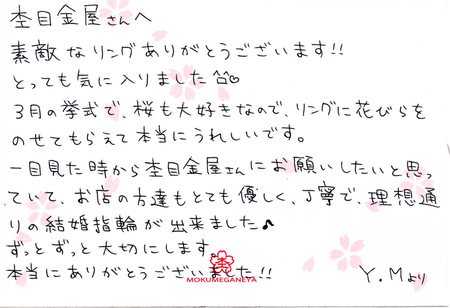 杢目金屋さんへ
素敵なリングありがとうございます!!
とっても気に入りました^^♡
3月の挙式で、桜も大好きなので、リングに花びらを
のせてもらえて本当にうれしいです。
一目見た時から杢目金屋さんにお願いしたいと思っ
ていて、お店の方達もとても優しく、丁寧で、理想通
りの結婚指輪が出来ました♪
ずっとずっと大切にします。
本当にありがとうございました!!
Y.Mより
MOKUMEGANEYA